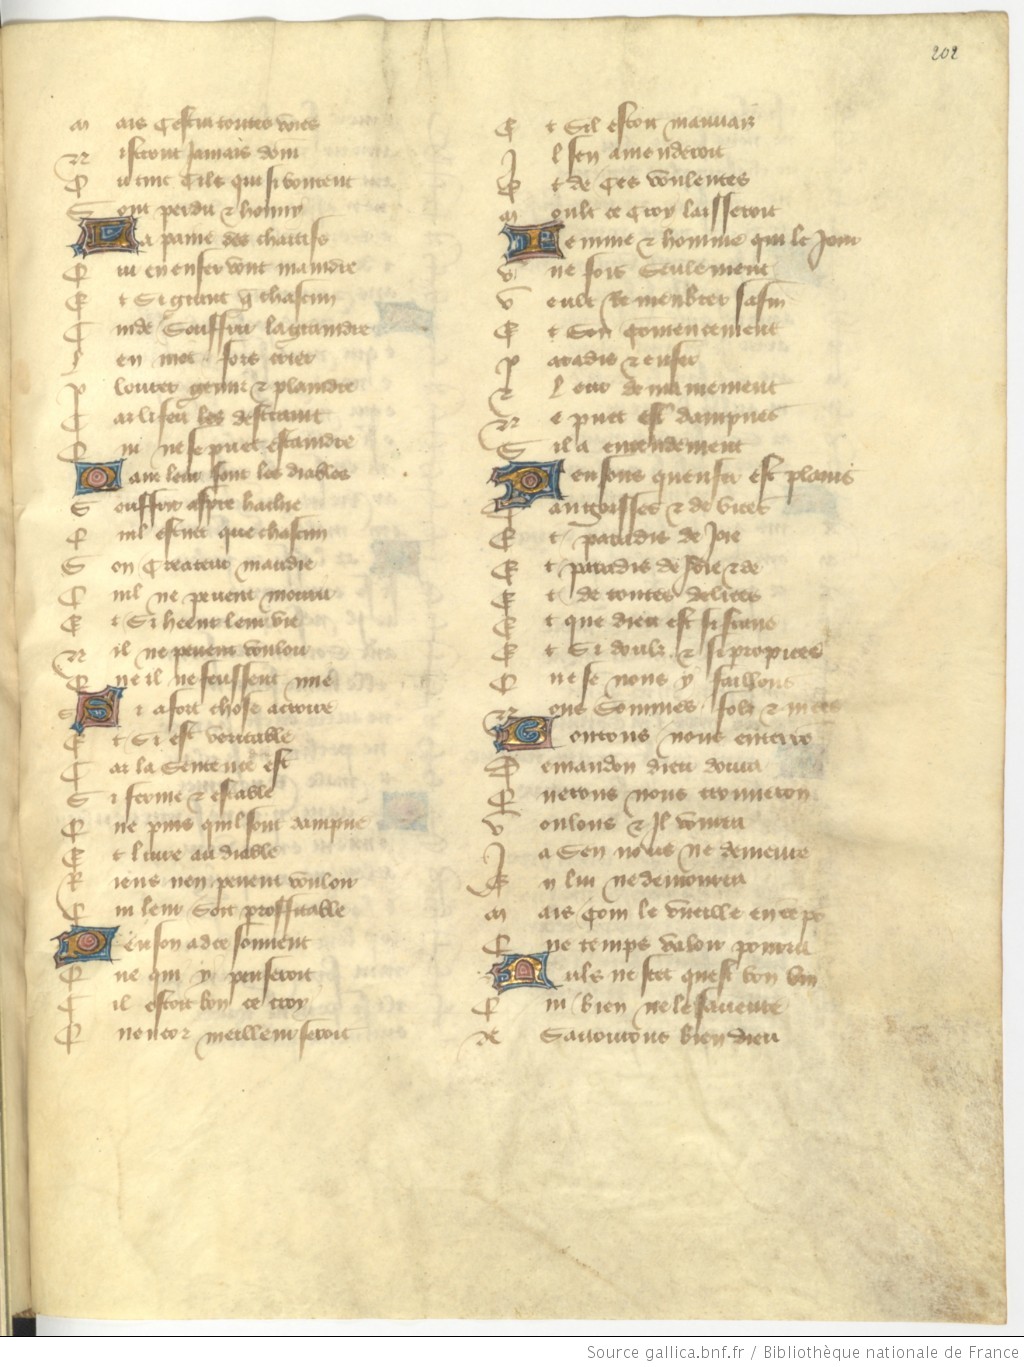 202
Mais cestui toutes voies
Nistront jamais dom
Cuient cilz qui si vontent
Sont perdu & honny
La paine des chaitifs
Qui en enfer vont maindre
Et si grant q chascun
Cuide souffrir la graindre
Rien met fors crier
Plourer gemir & plaindre
Car li feu les destraint
Qui ne se puet estaindre
Dautleur sont les diables
Souffrir aspre hachie
Cuil estuet que chascun
Son createur maudie
Cuil ne pevent mourir
Et si heent leur vie
Nil ne pevent voulou
Que il ne feussent mie
Si a fort chose a croire
Et si est veritable
Car la sentence est
Si ferme & estable
Que puis quil sont dampne
Et livre au diable
Riens nen pevent voulou
Qui leur soit proffitable
Penson a ce souvent
Que qui y penseroit
Cil estoit bon ce croy
Quencor meilleur seroit
Et sil estoit mauvaiz
Il sen amenderoit
Et de ces voulentes
Moult ce croy laisseroit
Femme & homme qui le jour
Une fois seulement
Veult remenbrer sa fin
Et son comencement
Paradis & enfer
& leur demainement
Ne puet estre dampnes
Sil a entendement
Pensons quenfer est plains
Dangoisses & de vices
Et paradis de joie
Et paradis de joie & de
Et de toutes delices
Et que dieu est si franc
Et si doulz & si propices
Que se nous y faillons
Nous sommes folz & nices
Contons nous entierr
Demandon dieu donra
Querons nous trouveron
Voulons & il vourra
Ja sen nous ne demeure
En lui ne demourra
Mais com le vueille en repo
Que temps valoir pourra
Nulz ne scet quest bon vin
Qui bien ne le saveure
Se savourons bien dieu